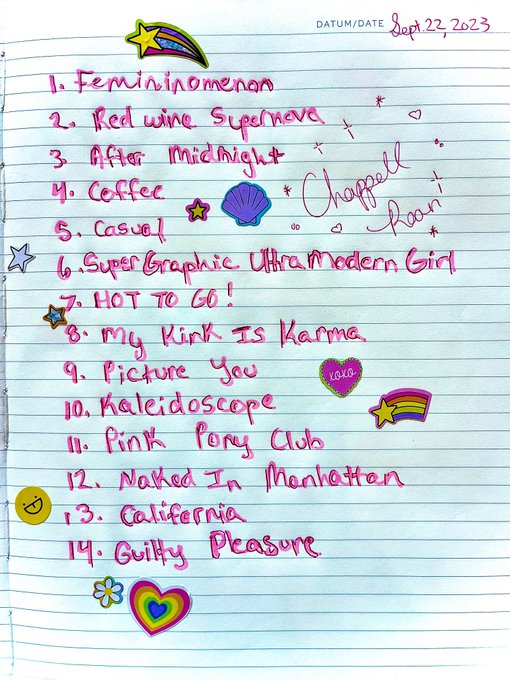 DATUM/DATE Sept. 22, 2023
1. Femininomenon
2. Red wine Supernova
3. After Midnight
4. Coffee
Chappell
Roan
5. Casual
6. Super Graphic Ultra Modern Girl
7. HOT TO GO!
8. My Kink Is Karma
9. Picture You
xoxo
10. Kaleidoscope
11. Pink Pony Club
12. Naked In Manhattan
13. California
14. Guilty Pleasure